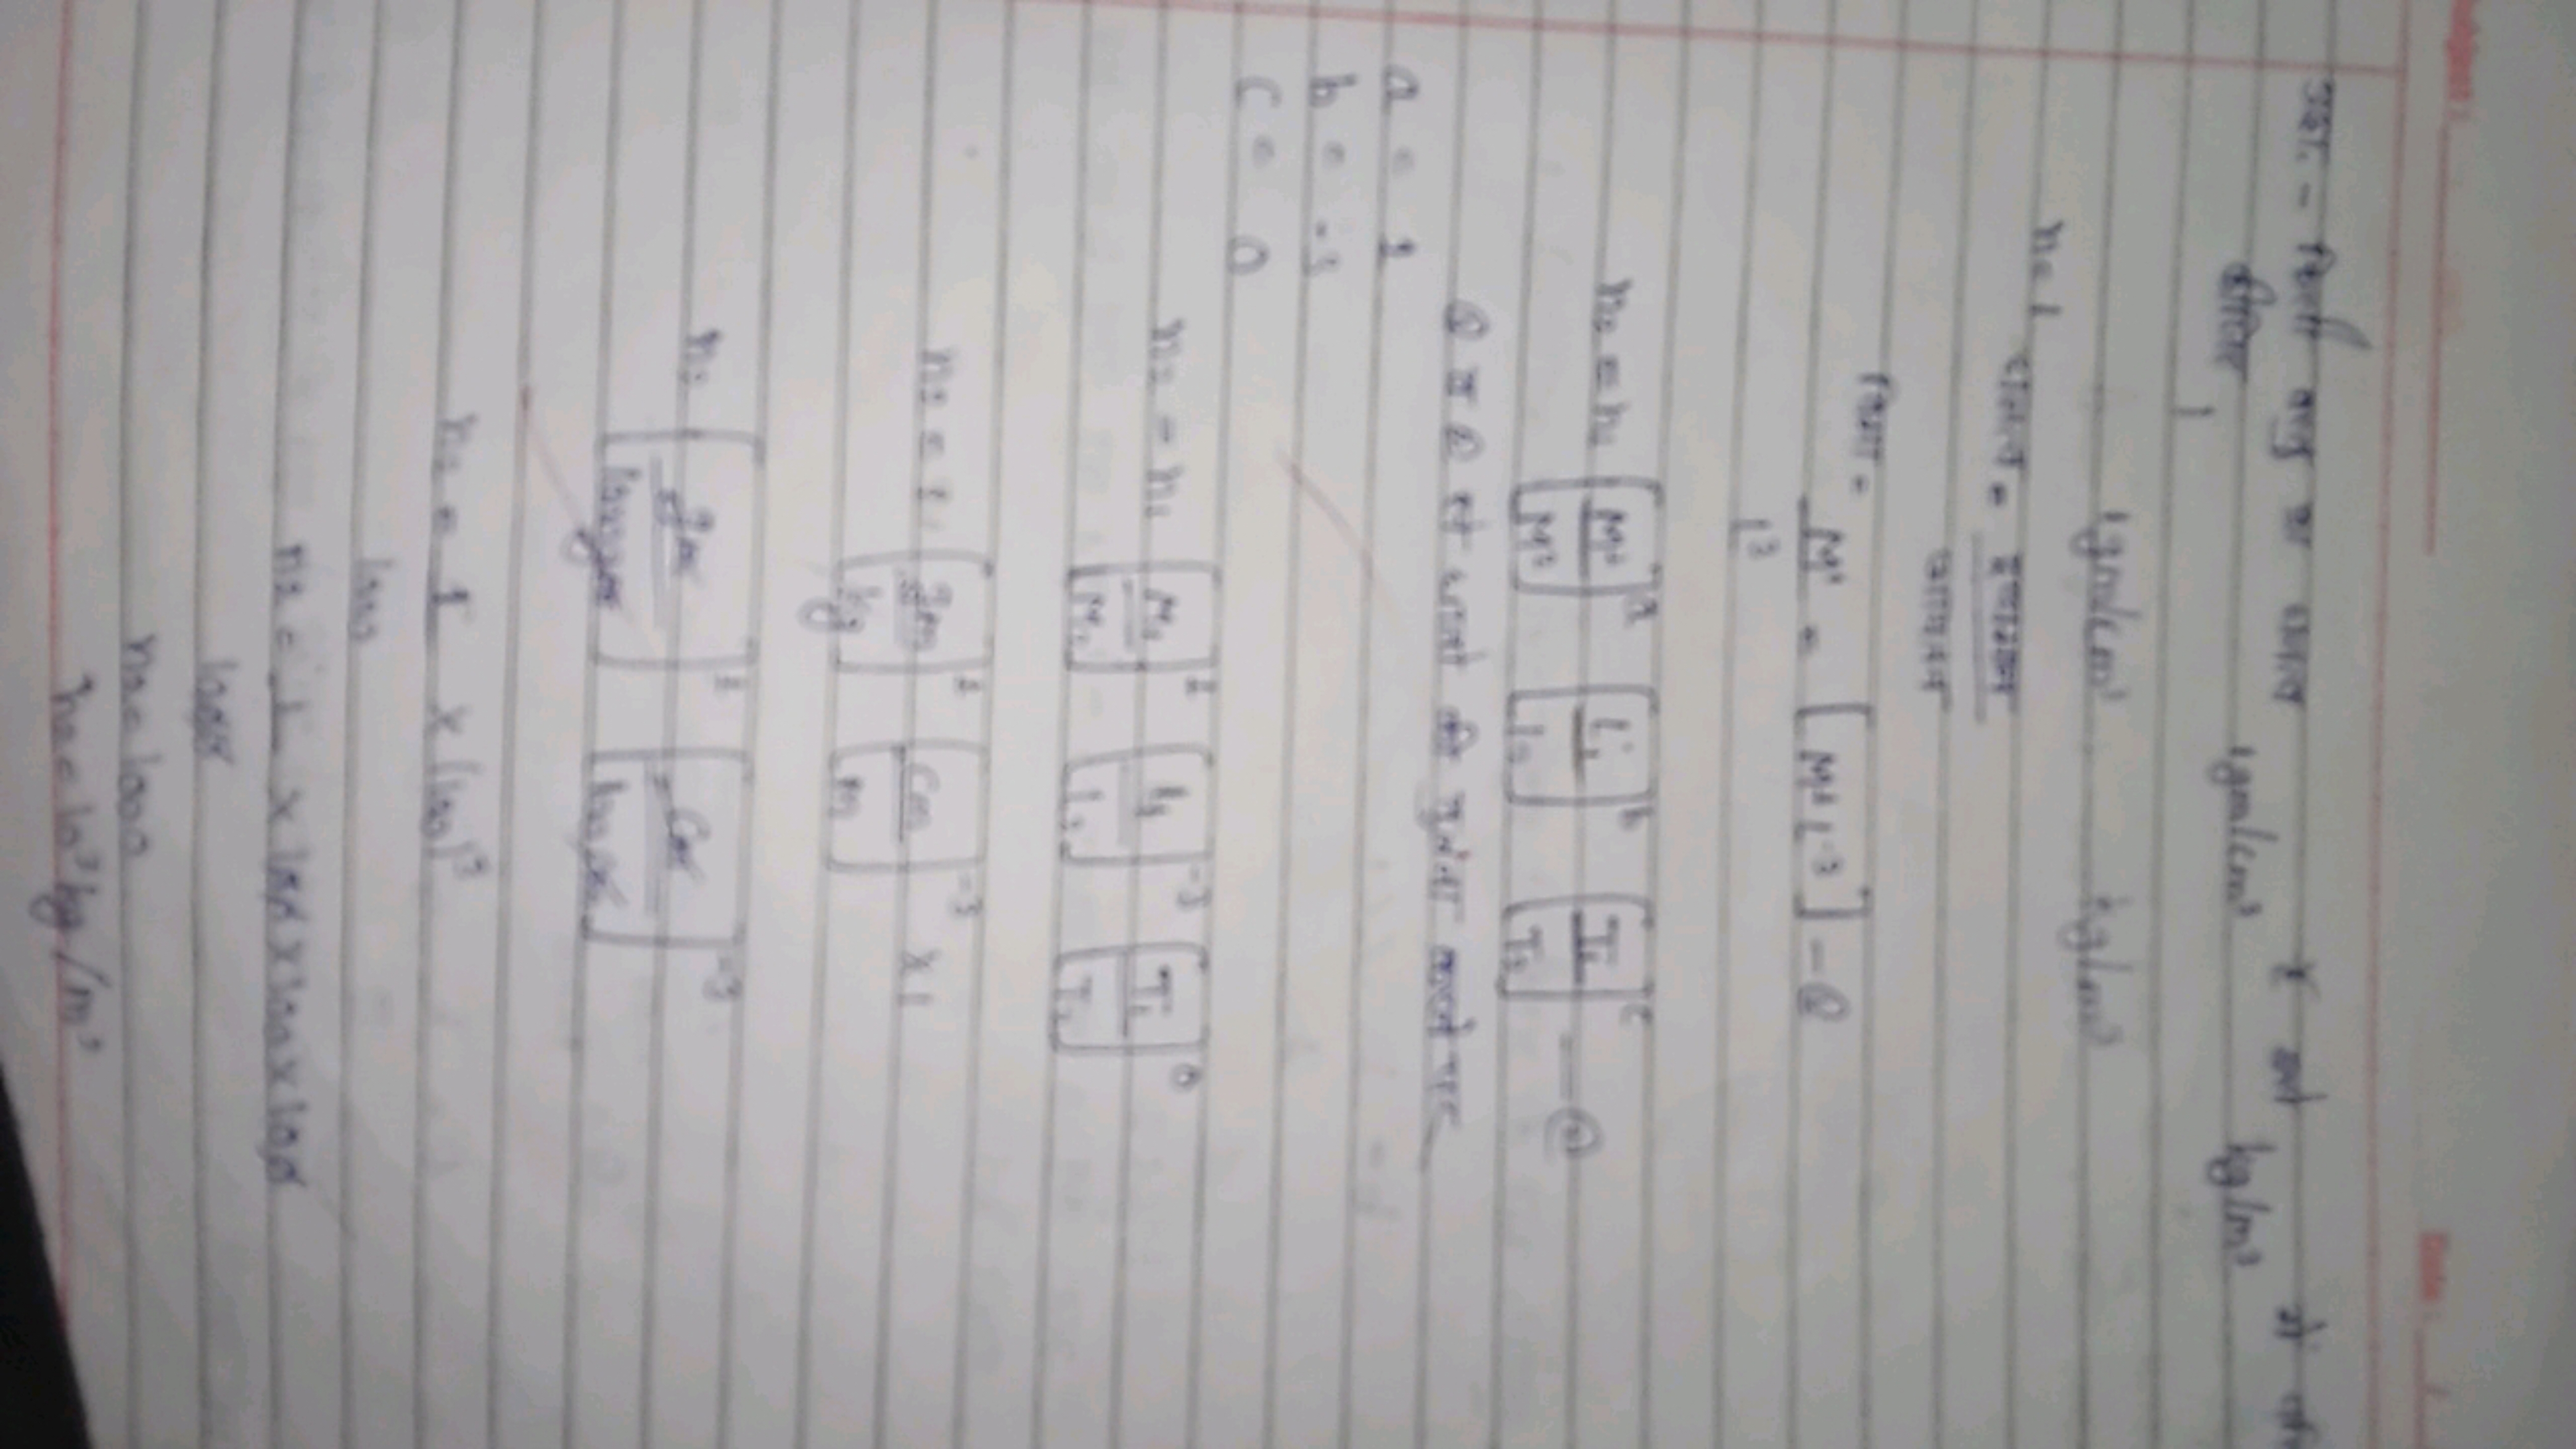 प्रश्न - किसी वस्तु का घनत्व 1gm/cm³ है इसे kg/m³ में
कीजिए
1gm/cm³ kg/m³
n₁ = 1
घनत्व = द्रव्यमान
आयतन
विमा =
M¹ = [M¹ L⁻³] - ①
L³
n₂ = n₁ [M₁/M₂]ᵃ [L₁/L₂]ᵇ [T₁/T₂]ᶜ — ②
① व ② से घातों की तुलना करने पर
a = 1
b = -3
c = 0
n₂ = n₁ [M₁/M₂]¹ [L₁/L₂]⁻³ [T₁/T₂]⁰
n₂ = 1 [gm/kg]¹ [cm/m]⁻³ x1
n₂ [gm/1000gm]¹ [cm/100cm]⁻³
n₂ = 1 x (100)³
1000
n₂ = 1 x 100 x 100 x 100
1000
n₂ = 1000
n₂ = 10³ kg/m³